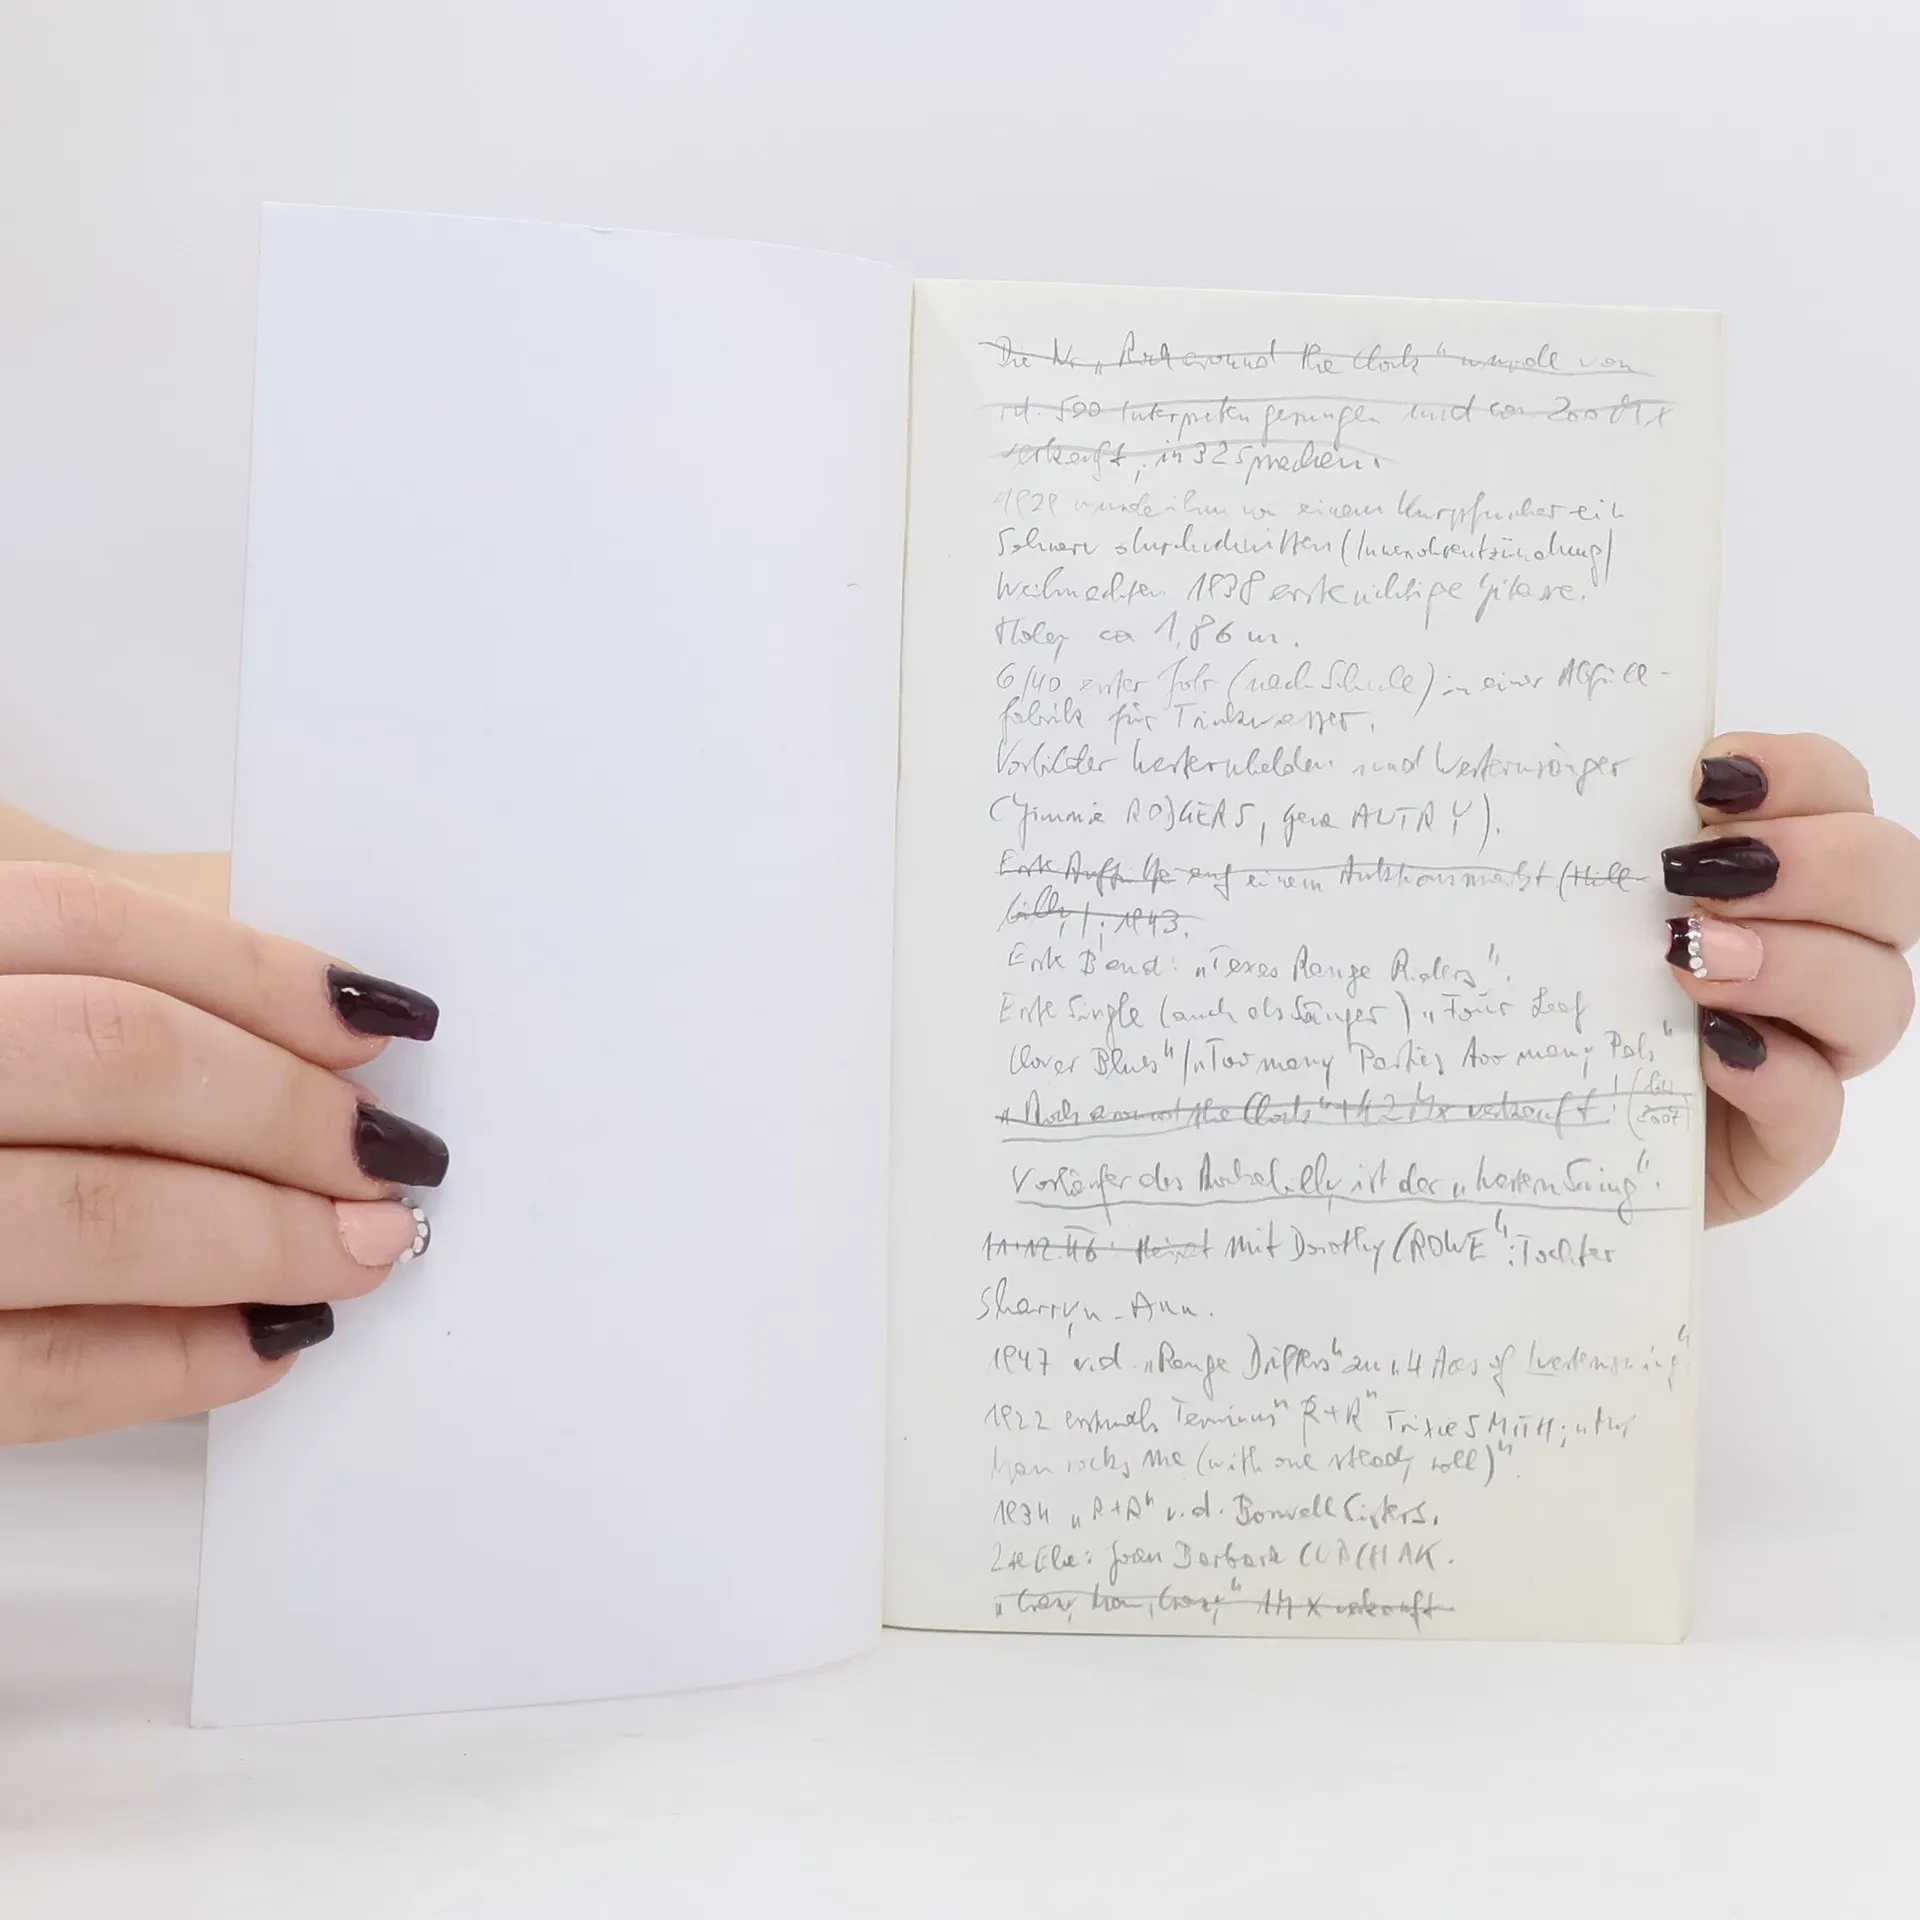 Die Nr „Rock around the Clock" wurde von
rd. 500 Interpreten gesungen und ca 200 M x
verkauft, in 32 Sprachen.
1929 wurde ihm von einem Kurpfuscher ein
Schnerv durchschnitten (Innenohrentzündung)
Weihnachten 1938 erste richtige Gitarre.
ca 1,86 m.
6/40 erster Job (nach Schule) in einer Abfüll-
fabrik für Trinkwasser.
Vorbilder Westernhelden und Westernsänger
(Jimmie RODGERS, Gene AUTRY).
Erste Auftritte auf einem Auktionsmarkt (Hill-
billy), 1943.
Erste Band: „Texas Range Riders".
Erste Single (auch als Sänger) „Four Leaf
Clover Blues"/„Too many Parties too many Pals"
„Rock around the Clock" 42 Mx verkauft! 2007
Vorläufer des Rockabilly ist der „Western Swing".
11.12.46: Heirat mit Dorothy (ROWE"; Tochter
Sharryn-Ann.
1947 v.d. „Range Drifters" zu „4 Aces of Westernswing"
1922 erstmals Terminus „R+R" Trixie SMITH; „My
Man rocks me (with one steady roll)".
1934 „R+R" v.d. Boswell Sisters.
2te Ehe: Joan Barbara CUPCHAK.
„Crazy Man, Crazy" 1M x verkauft